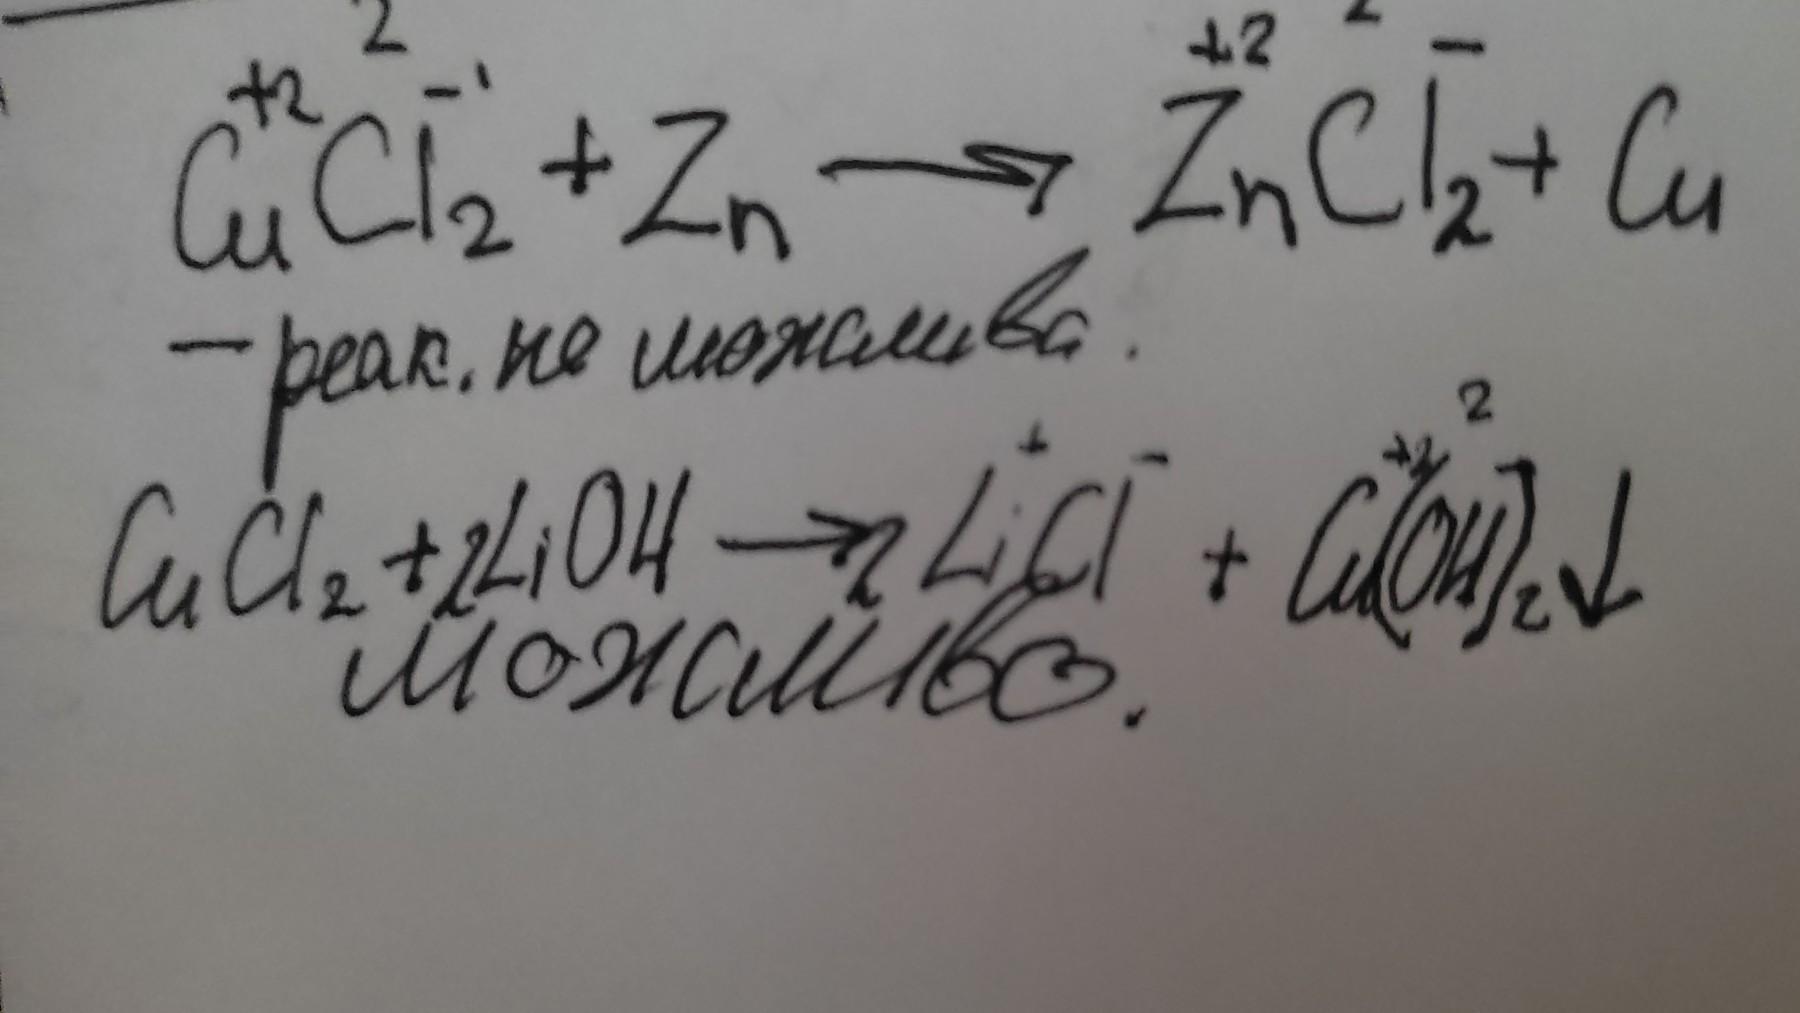 2 2
Cu⁺²Cl₂⁻¹ + Zn → Zn⁺²Cl₂⁻ + Cu
– реак. не можлива.
2
CuCl₂ + 2LiOH → 2Li⁺Cl⁻ + Cu⁺²(OH)₂⁻↓
можливо.